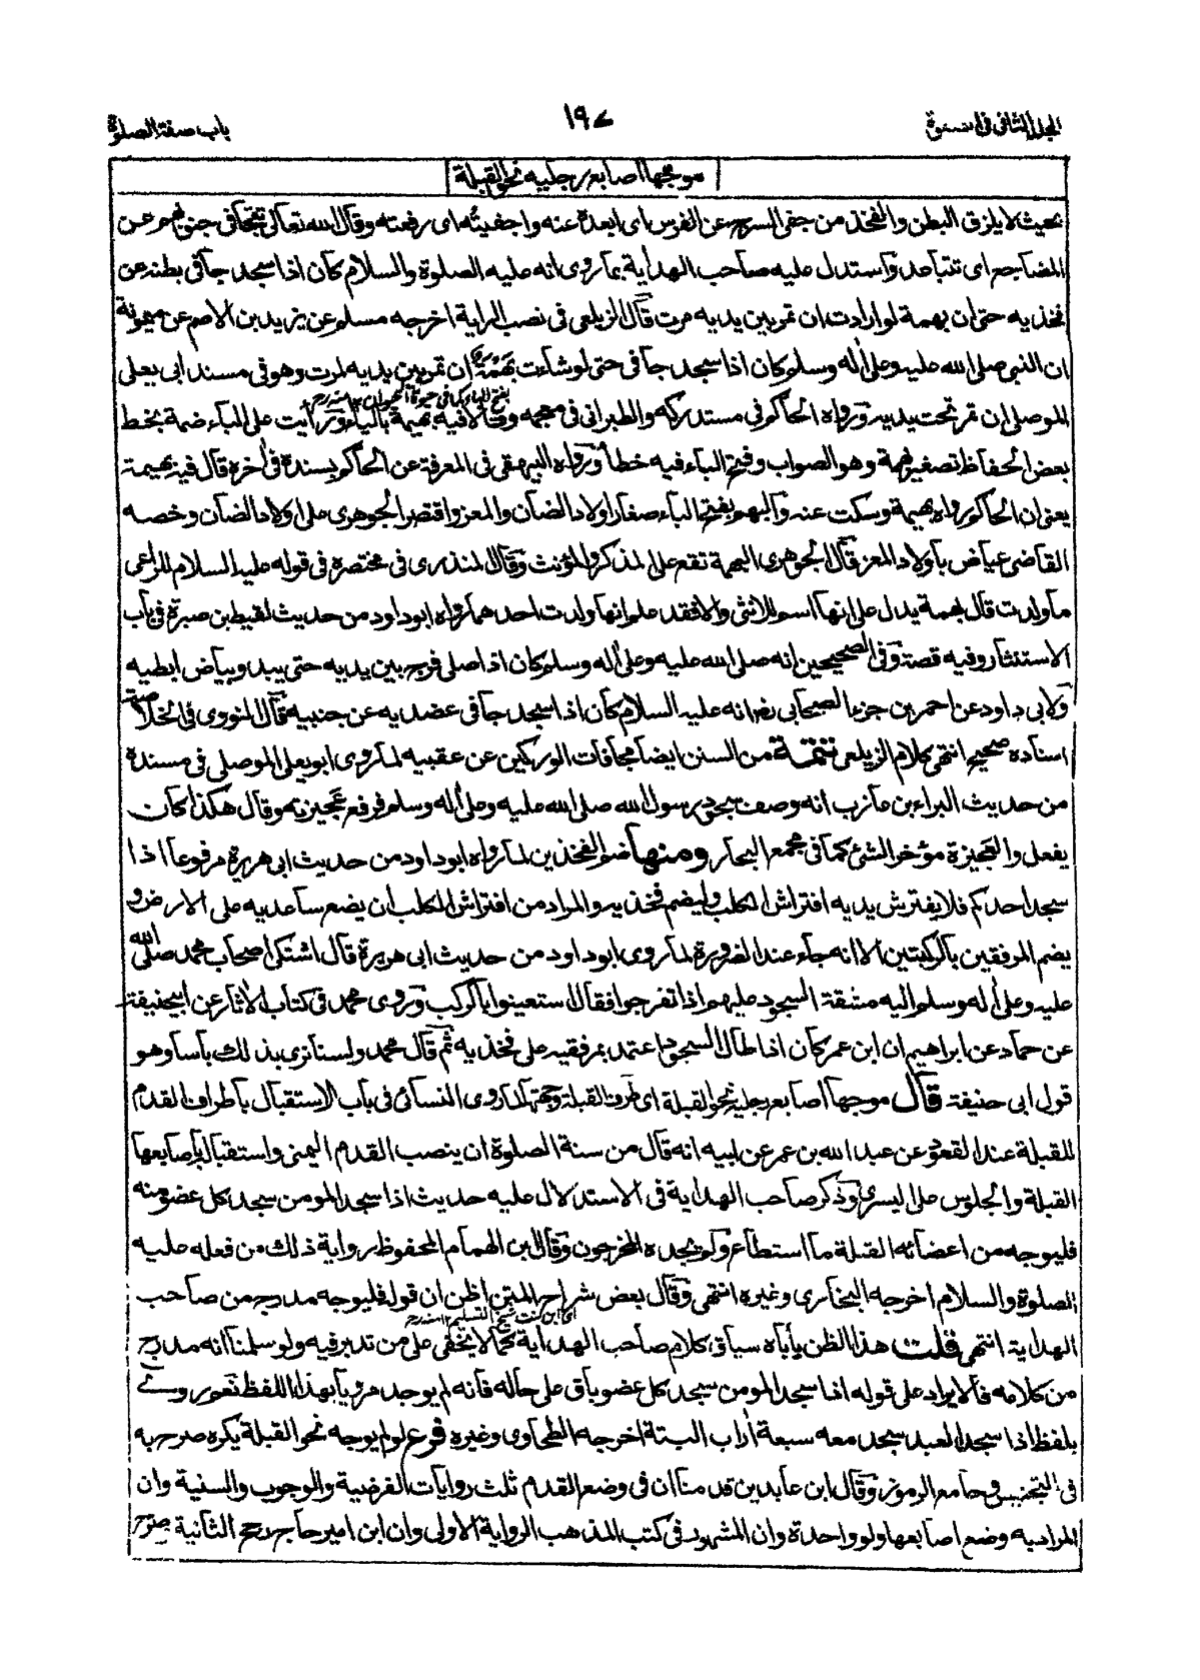 باب صفة الصلوة
١٩٧
المجلد الثانى فى
موجها اصابع رجليه نحو القبلة
بحيث لا يلزق البطن والفخذ من جفى السرج عن الفرس اى ابعده عنه واجفيته اى رفعته وقال الله تعالى تتجافى جنوبهم عن
المضاجع اى تتباعد واستدل عليه صاحب الهداية بما روى انه عليه الصلوة والسلام كان اذا سجد جافى بطنه عن
فخذيه حتى ان بهمة لو ارادت ان تمر بين يديه مرت قال الزيلعى فى نصب الراية اخرجه مسلم عن يزيد بن الاصم عن ميمونة
ان النبى صلى الله عليه وعلى أله وسلم كان اذا سجد جافى حتى لو شاءت بهمة ان تمر بين يديه لمرت وهو فى مسند ابى يعلى
بفتح الباء كما فى حيوة الحيوان
الموصلى ان تمر تحت يديه ورواه الحاكم فى مستدركه والطبرانى فى معجمه وقالا فيه بهيمة بالياء ورايت على الباء ضمة بخط
بعض الحفاظ تصغير بهمة وهو الصواب وفتح الباء فيه خطأ ورواه البيهقى فى المعرفة عن الحاكم بسنده فى أخره قال فيه بهيمة
يعنى ان الحاكم رواه بهيمة وسكت عنه والبهم بفتح الباء صغار اولاد الضان والمعز واقتصر الجوهرى على اولاد الضأن وخصه
القاضى عياض باولاد المعز قال الجوهرى البهمة تقع على المذكر والمؤنث وقال المنذرى فى مختصره فى قوله عليه السلام للراعى
ما ولدت قال بهمة يدل على انها اسم للانثى والا فقد علم انها ولدت احدهما رواه ابو داود من حديث لقيط بن صبرة فى باب
الاستنثار وفيه قصة وفى الصحيحين انه صلى الله عليه وعلى أله وسلم كان اذا صلى فرج بين يديه حتى يبدو بياض ابطيه
ولابى داود عن احمر بن جزء الصحابى انه عليه السلام كان اذا سجد جافى عضديه عن جنبيه قال النووى فى الخلاصة
اسناده صحيح انتهى كلام الزيلعى تتمة من السنن ايضا مجافات الوركين عن عقبيه لما روى ابو يعلى الموصلى فى مسنده
من حديث البراء بن عازب انه وصف سجود رسول الله صلى الله عليه وعلى أله وسلم فرفع عجيزته وقال هكذا كان
يفعل والعجيزة مؤخر الشئ كما فى مجمع البحار ومنها ضم الفخذين لما رواه ابو داود من حديث ابى هريرة مرفوعا اذا
سجد احدكم فلا يفترش يديه افتراش الكلب وليضم فخذيه والمراد من افتراش الكلب ان يضع ساعديه على الارض و
يضم المرفقين بالركبتين الا انه جاء عند الضرورة لما روى ابو داود من حديث ابى هريرة قال اشتكى اصحاب محمد صلى الله
عليه وعلى أله وسلم اليه مشقة السجود عليهم اذا تفرجوا فقال استعينوا بالركب وروى محمد فى كتاب الأثار عن ابى حنيفة
عن حماد عن ابراهيم ان ابن عمر كان اذا طال السجود اعتمد بمرفقيه على فخذيه ثم قال محمد ولسنا نرى بذلك بأسا وهو
قول ابى حنيفة قال موجها اصابع رجليه نحو القبلة اى طرف القبلة وجهتها لما روى النسائى فى باب الاستقبال باطراف القدم
للقبلة عند القعود عن عبد الله بن عمر عن ابيه انه قال من سنة الصلوة ان ينصب القدم اليمنى واستقباله باصابعها
القبلة والجلوس على اليسرى وذكر صاحب الهداية فى الاستدلال عليه حديث اذا سجد المومن سجد كل عضو منه
فليوجه من اعضائه القبلة ما استطاع ولم يجده المخرجون وقال ابن الهمام المحفوظ رواية ذلك من فعله عليه
الصلوة والسلام اخرجه البخارى وغيره انتهى وقال بعض شراح المتن اظن ان قوله فليوجه مدرج من صاحب
الهداية انتهى قلت هذا الظن يأباه سياق كلام صاحب الهداية كما لا يخفى على من تدبر فيه ولو سلمنا انه مدرج
من كلامه فالايراد على قوله اذا سجد المومن سجد كل عضو باق على حاله فانه لم يوجد مرويا بهذا اللفظ نعم روى
بلفظ اذا سجد العبد سجد معه سبعة أراب البتة اخرجه الطحاوى وغيره فرع لو لم يوجه نحو القبلة يكره صرح به
فى التجنيس وجامع الرموز وقال ابن عابدين قدمنا ان فى وضع القدم ثلث روايات الفرضية والوجوب والسنية وان
المراد به وضع اصابعها ولو واحدة وان المشهور فى كتب المذهب الرواية الاولى وان ابن امير حاج رجح الثانية صرح